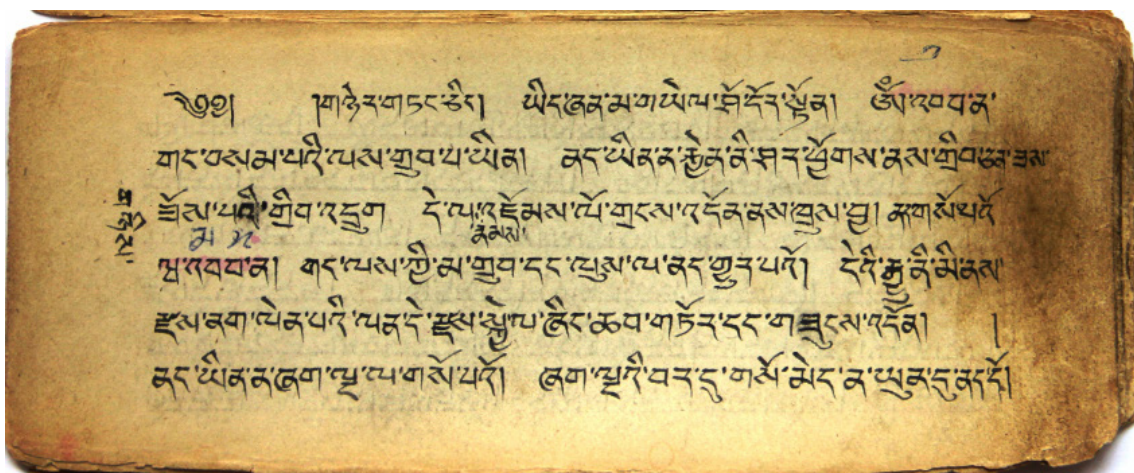 ༄༅༅། །གཉེར་གཏང་ཅིང། ཡིད་ཞན་མ་གཡེལ་ཤྲོ་དོར་སྟོན། འབབ་ན་
གང་བསམ་པའི་ལས་གྲུབ་པ་ཡིན། ནད་ཡིན་ན་རྐྱེན་ནི་ཤར་ཕྱོགས་ནས་གྲིབ་ཅན་ཟས་
ཟོས་པའི་གྲིབ་འདྲུག དེ་ལ་འཛོམས་པོ་གྲངས་འདོན་ནས་ཁྲུས་བྱ། ན་གསོ་བའོ
རྣམས་
མ
ལྔ་འབབ་ན། གང་ལས་ཀྱི་མ་གྲུབ་དང་ལུས་ལ་ནད་གྱུར་པའོ། དེའི་རྒྱུ་ནི་མི་ནས་
རྫས་ནག་ལེན་པའི་ལན་དེ་རྫས་སྐྱེ་ལ་ཞིང་ཆབ་གཏོར་དང་གཟུངས་འདོན། །
ནད་ཡིན་ན་ཞག་ལྔ་ལ་གསོ་བའོ། ཞག་ལྔའི་བར་དུ་གསོ་མེད་ན་ཡུན་དུ་ནད་དོ།